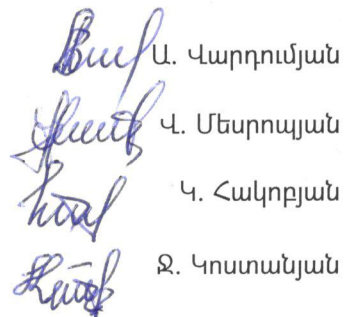 Ա. Վարդումյան
Վ. Մեսրոպյան
Կ. Հակոբյան
Ջ. Կոստանյան